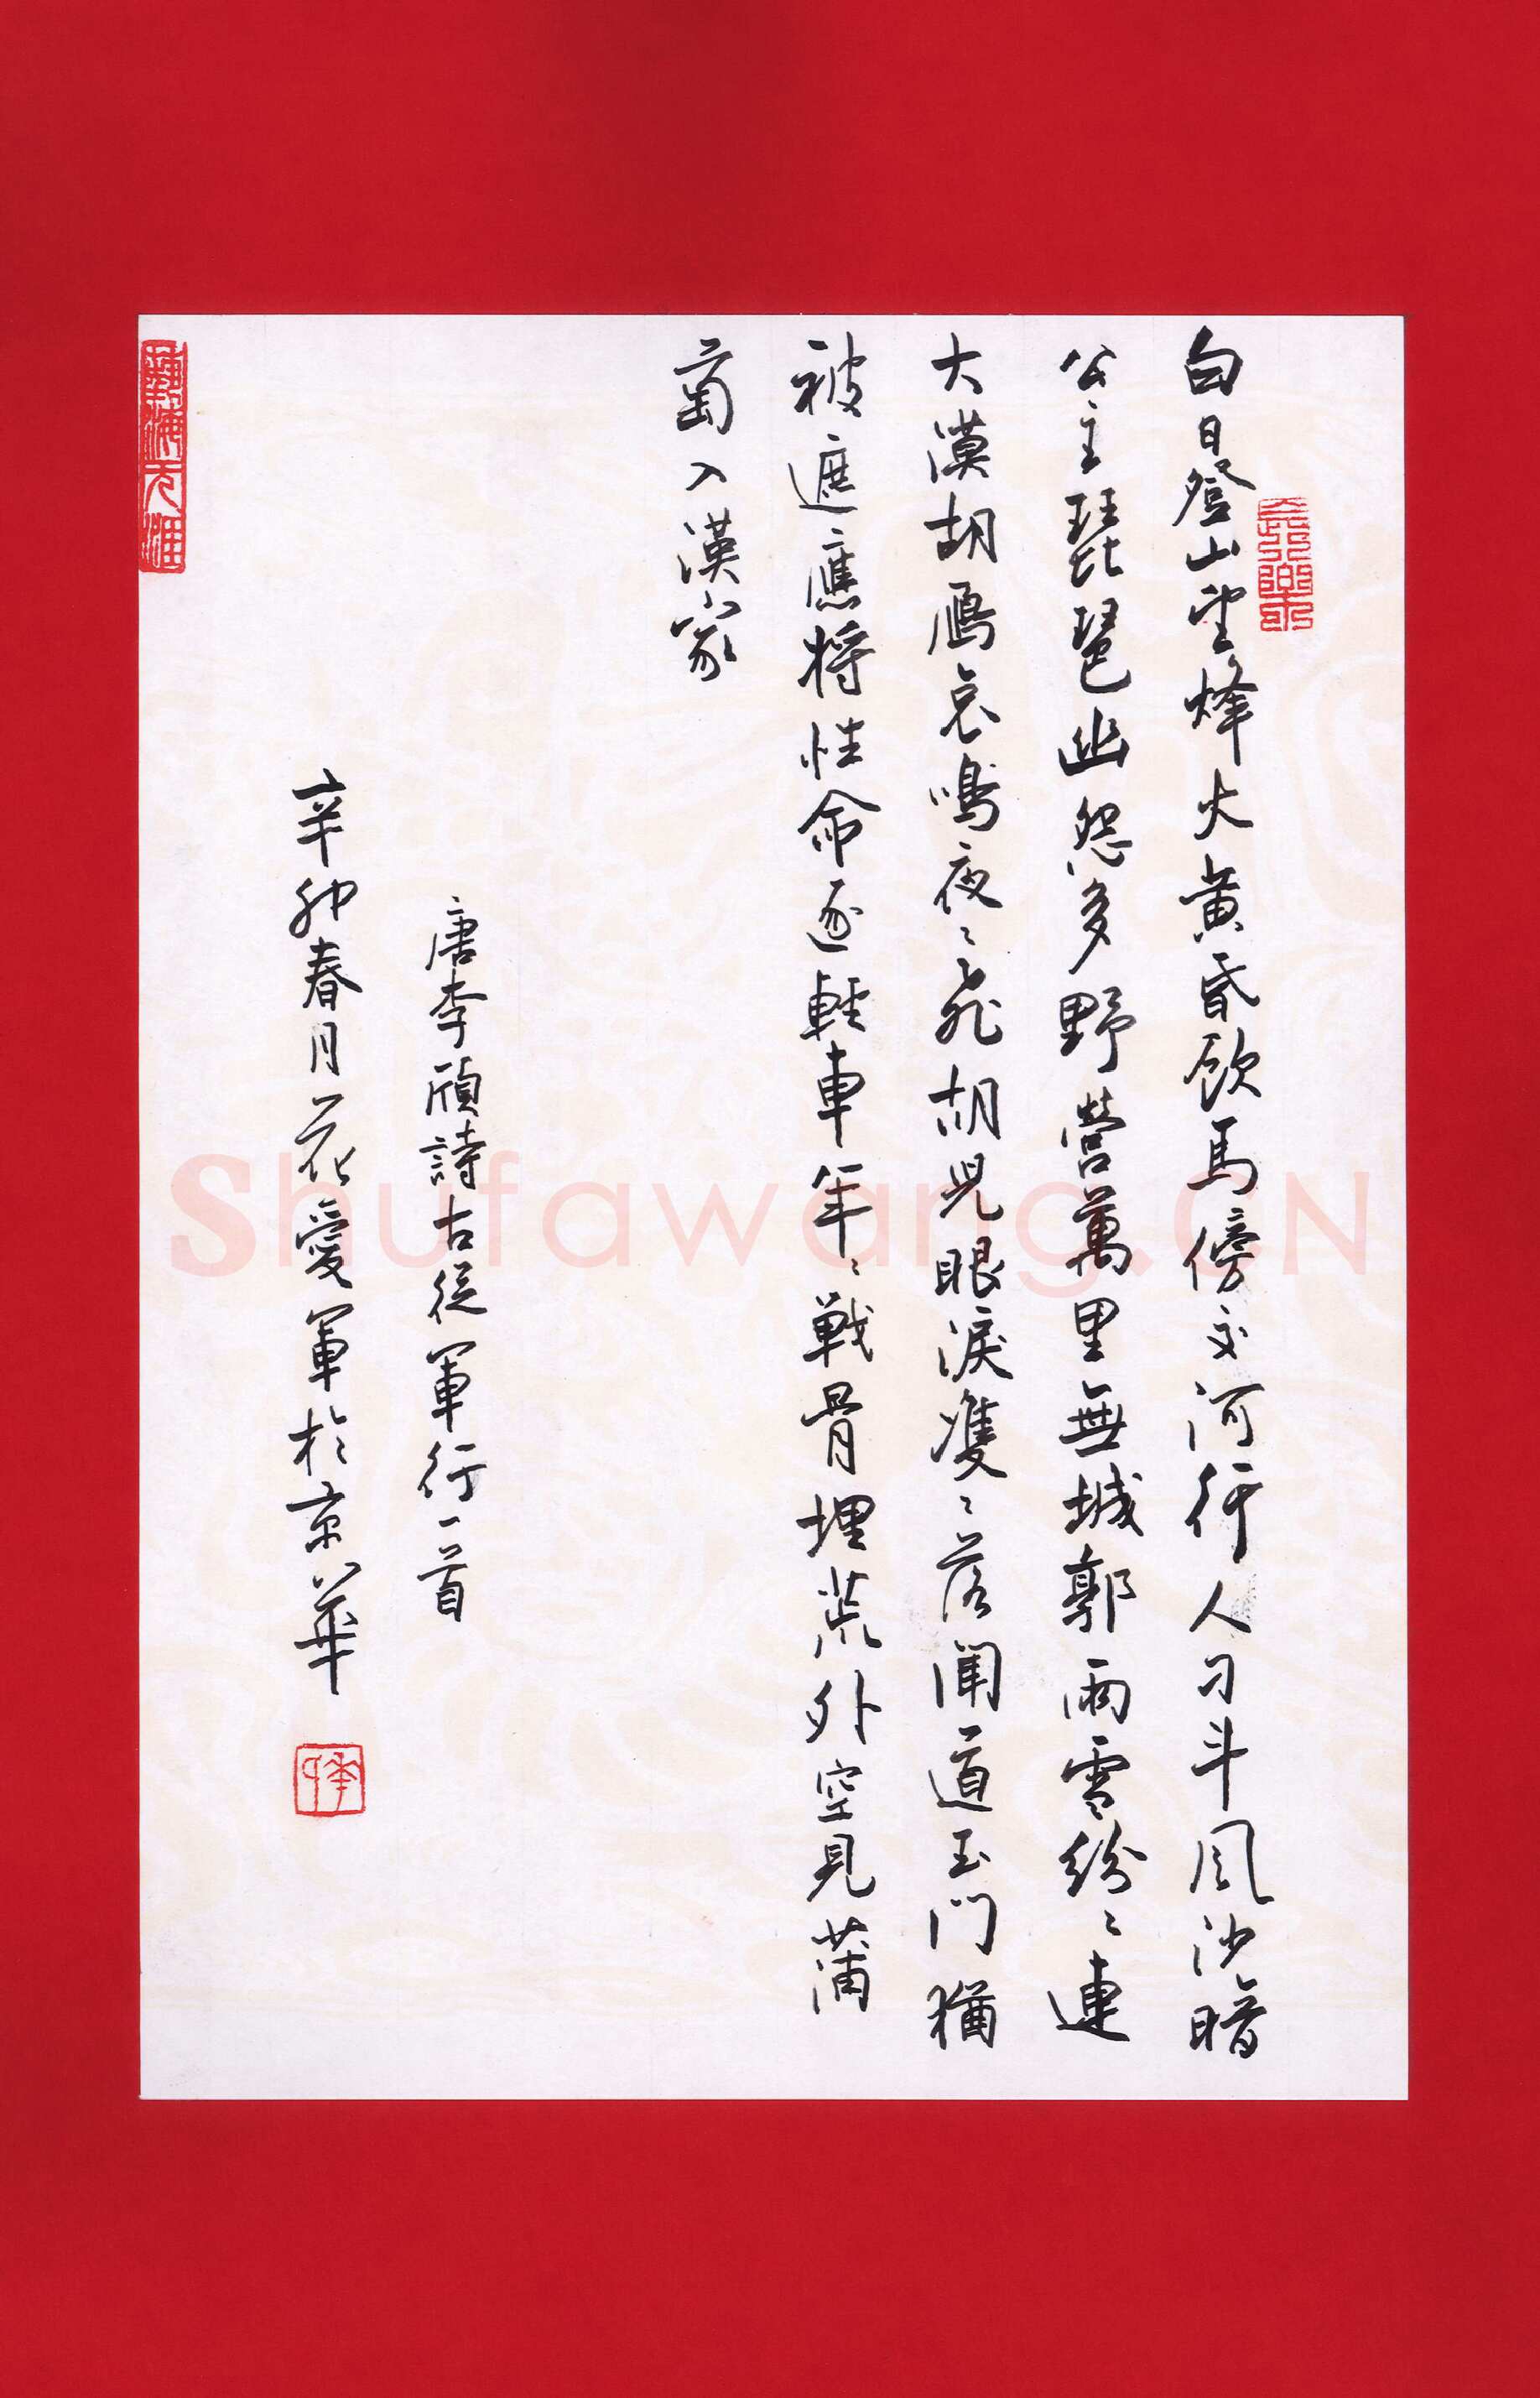 白日登山望烽火黃昏飲馬傍交河行人刁斗風沙暗
公主琵琶幽怨多野營萬里無城郭雨雪紛〻連
大漠胡雁哀鳴夜〻飛胡兒眼淚雙〻落聞道玉門猶
被遮應將性命逐輕車年〻戰骨埋荒外空見蒲
萄入漢家
唐李頎詩古從軍行一首
辛卯春月花愛軍於京華
Shufawang.CN